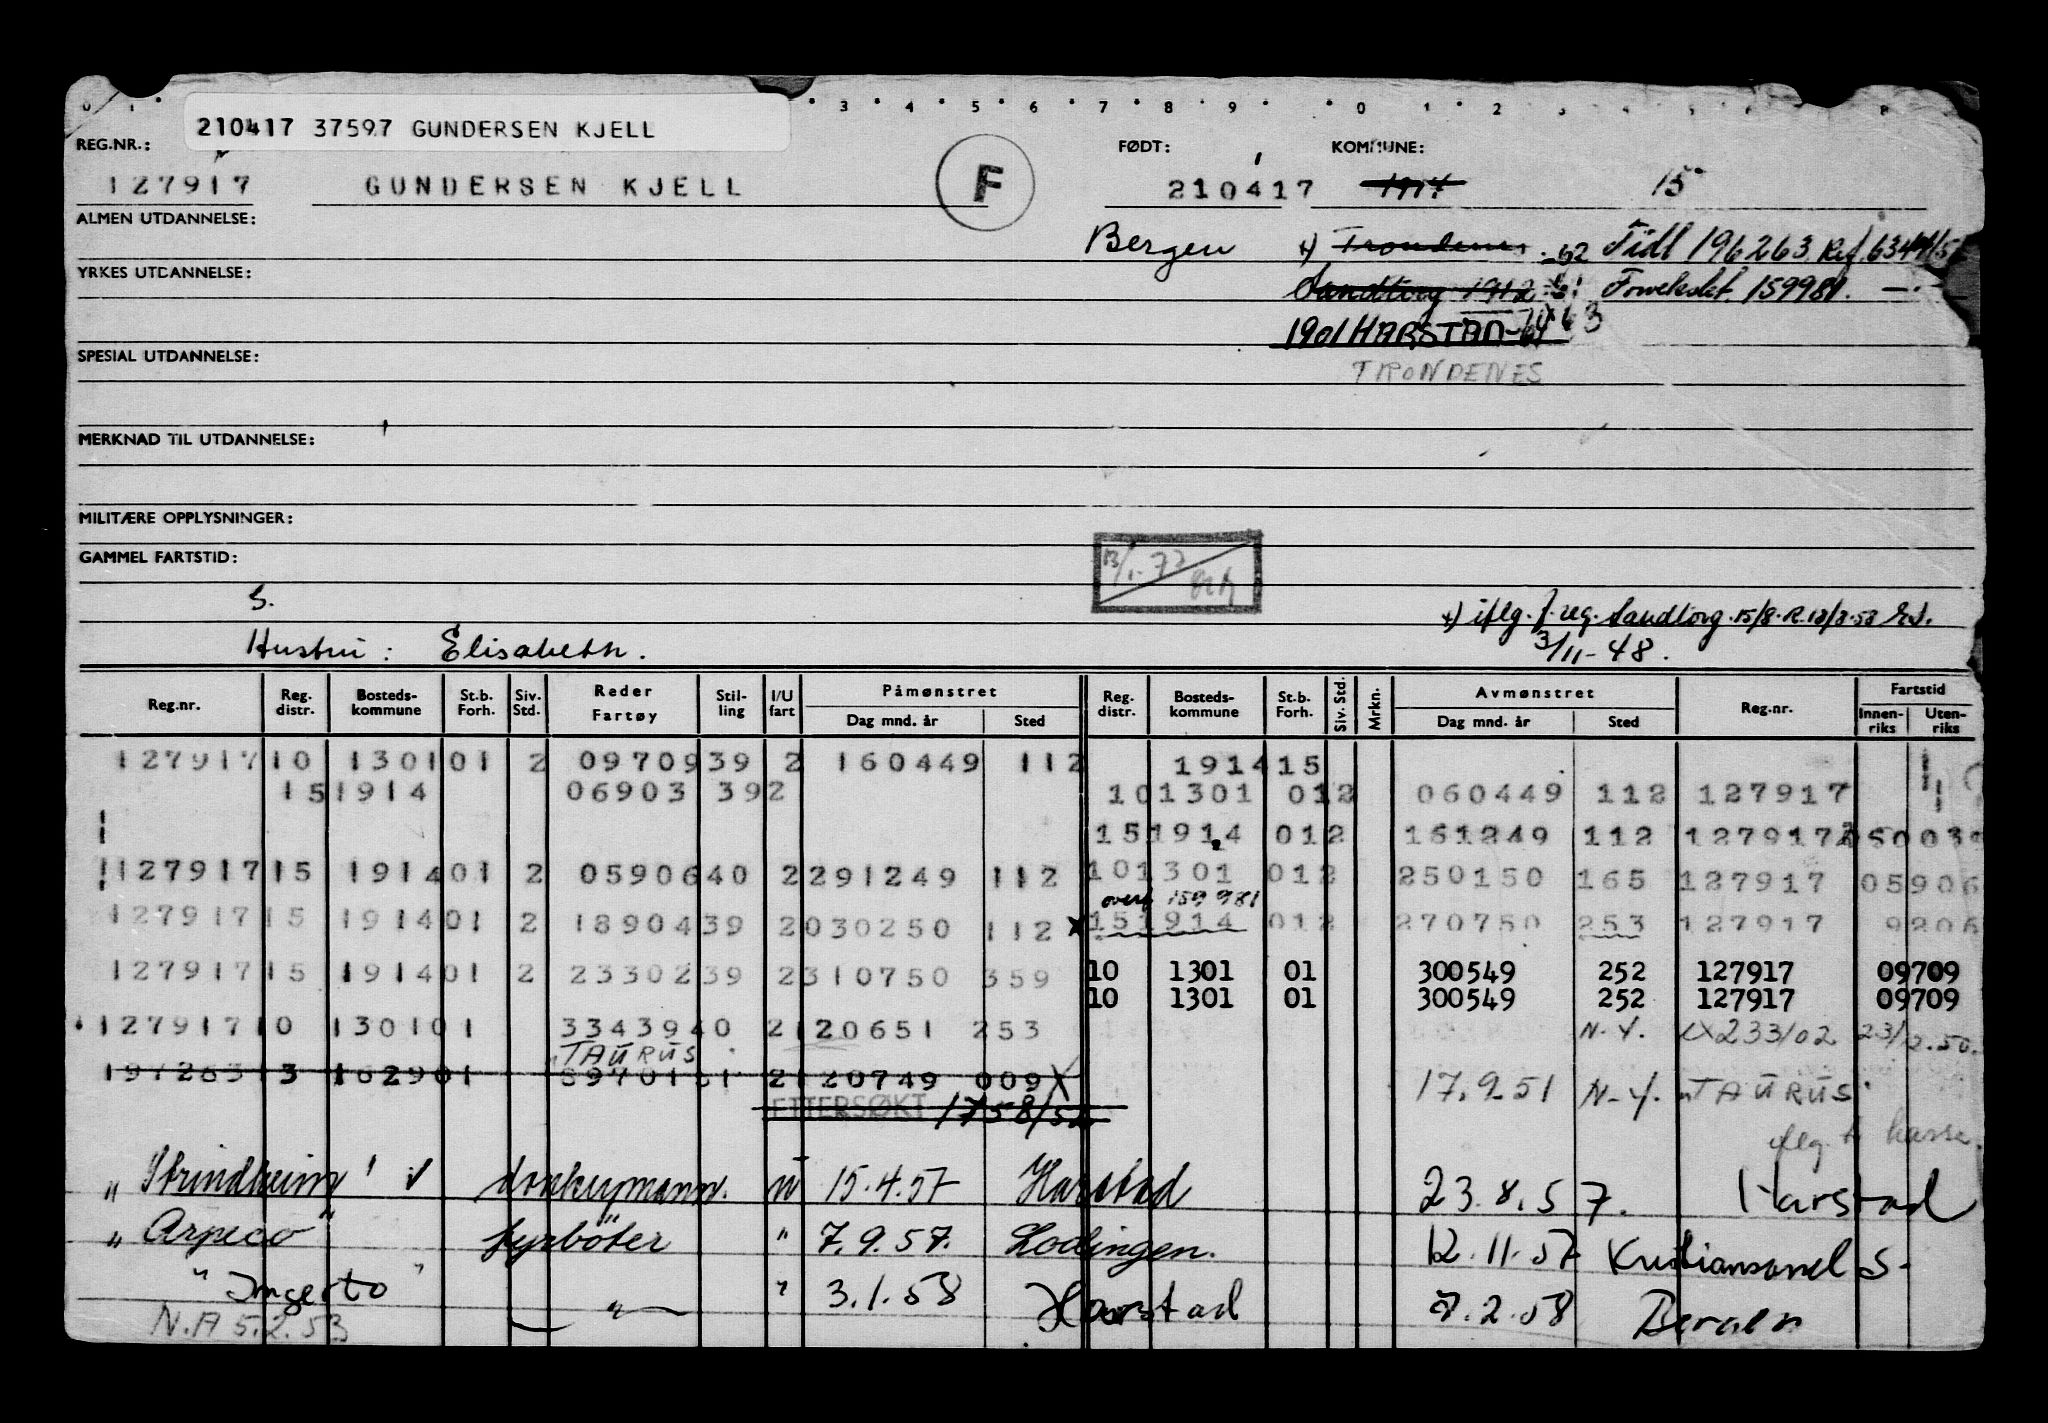 210417 37597 GUNDERSEN KJELL
REG.NR.: FØDT: KOMMUNE:
127917 GUNDERSEN KJELL F 210417 1914 15
ALMEN UTDANNELSE:
Bergen x) Trondenes -52 Tidl 196263 Ref. 6344/5
YRKES UTDANNELSE:
Sandtorg 1912 159981.
1901 HARSTAD-64 63
SPESIAL UTDANNELSE:
TRONDENES
MERKNAD TIL UTDANNELSE:
MILITÆRE OPPLYSNINGER:
GAMMEL FARTSTID:
13/1-72
S.
x) iflg. f. reg. Sandtorg. 15/8. R. 18/8-58
Hustru: Elisabeth. 3/11-48.
Reg.nr. Reg. distr. Bosteds-kommune St.b. Forh. Siv. Std. Reder Fartøy Stil-ling I/U fart Påmønstret Dag mnd. år Sted Reg. distr. Bosteds-kommune St.b. Forh. Siv. Std. Mrkn. Avmønstret Dag mnd. år Sted Reg.nr. Fartstid Innen-riks Uten-riks
127917 10 1301 01 2 09709 39 2 160449 112 1914 15
15 1914 06903 39 2 10 1301 01 2 060449 112 127917
15 1914 01 2 161249 112 127917
127917 15 1914 01 2 05906 40 2 291249 112 10 1301 01 2 250150 165 127917 05906
overf 159981
127917 15 1914 01 2 18904 39 2 030250 112 x 15 1914 01 2 270750 253 127917 9206
127917 15 1914 01 2 23302 39 2 310750 359 10 1301 01 300549 252 127917 09709
10 1301 01 300549 252 127917 09709
127917 10 1301 01 33439 40 2 120651 253 N.Y. 233/02 23/12.50.
TAURUS
1629 01 2 120749 009 X 17.9.51 N.Y. "TAURUS
ETTERSØKT 1758/52
"Strindheim" donkeymann. u 15.4.57 Harstad 23.8.57. Harstad
"Arpeco" fyrbøter " 7.9.57. Lødingen. 12.11.57 Kristiansand S.
"Ingerto" " " 3.1.58 Harstad 7.2.58 Bergen
N.A 5.2.53